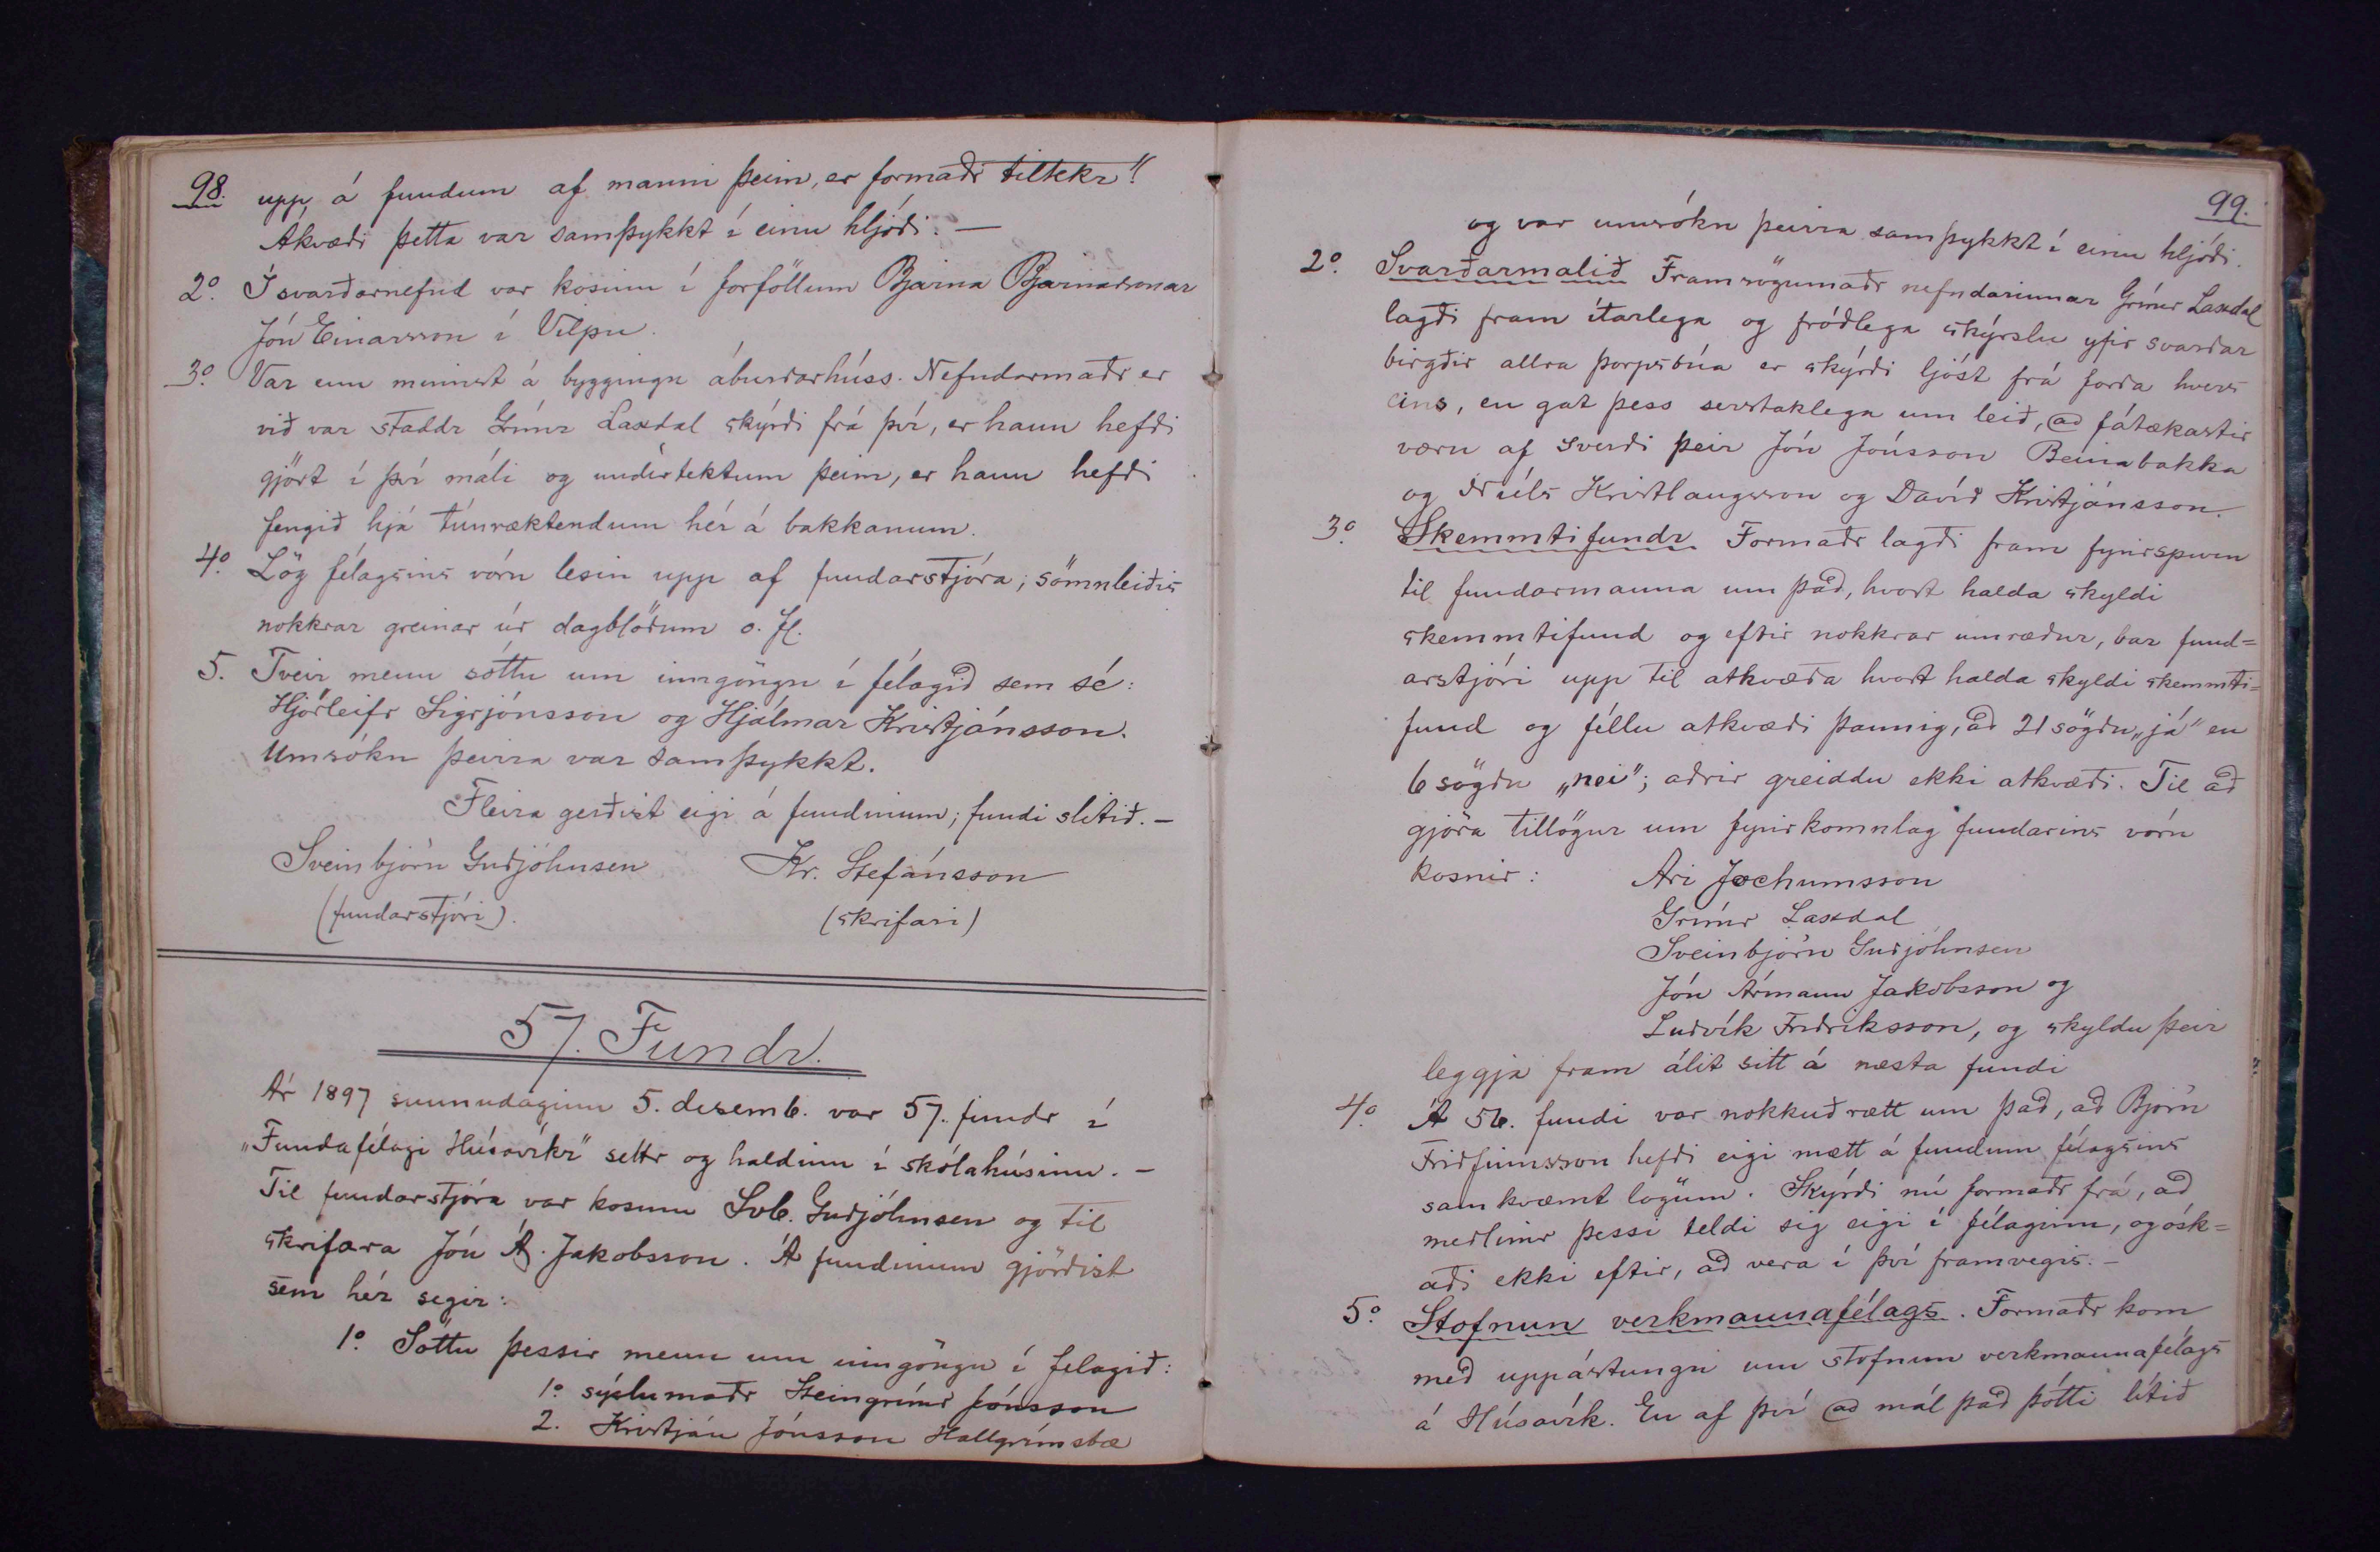 98. upp á fundum af manni þeim, er formaðr tiltekr."
Ákvæði þetta var samþykkt í einu hljóði. —
2º. Í svarðarnefnd var kosinn í forföllum Bjarna Bjarnasonar
Jón Einarsson í Vilpu.
3º. Var enn minnst á byggingu áburðarhúss. Nefndarmaðr er
við var staddr Grímr Laxdal skýrði frá því, er hann hefði
gjört í því máli og undirtektum þeim, er hann hefði
fengið hjá túnræktendum hér á bakkanum.
4º. Lög félagsins vóru lesin upp af fundarstjóra; sömuleiðis
nokkrar greinar úr dagblöðum o. fl.
5. Tveir menn sóttu um inngöngu í félagið sem sé:
Hjörleifr Sigrjónsson og Hjálmar Kristjánsson.
Umsókn þeirra var samþykkt.
Fleira gerðist eigi á fundinum; fundi slitið. —
Sveinbjörn Guðjóhnsen Kr. Stefánsson
(fundarstjóri). (skrifari)
57. Fundr.
Ár 1897 sunnudaginn 5. desemb. var 57. fundr í
„Fundafélagi Húsavíkr" settr og haldinn í skólahúsinu. —
Til fundarstjóra var kosinn Svb. Guðjóhnsen og til
skrifara Jón Á. Jakobsson. Á fundinum gjörðist
sem hér segir:
1º. Sóttu þessir menn um inngöngu í felagið:
1º sýslumaðr Steingrímr Jónsson
2. Kristján Jónsson Hallgrímsbæ
99.
og var umsókn þeirra samþykkt í einu hljóði.
2º. Svarðarmalið Framsögumaðr nefndarinnar Grímr Laxdal
lagði fram ítarlega og fróðlega skýrslu yfir svarðar
birgðir allra þorpsbúa er skýrði ljóst frá forða hvers
eins, en gat þess serstaklega um leið, að fátækastir
væru af sverði þeir Jón Jónsson Beinabakka
og Níels Kristlaugsson og Davíð Kristjánsson.
3º. Skemmtifundr Formaðr lagði fram fyrirspurn
til fundarmanna um það, hvort halda skyldi
skemmtifund og eftir nokkrar umræður, bar fund=
arstjóri upp til atkvæða hvort halda skyldi skemmti=
fund og féllu atkvæði þannig, að 21 sögðu „já" en
6 sögðu „nei"; aðrir greiddu ekki atkvæði. Til að
gjöra tillögur um fyrirkomulag fundarins vóru
kosnir: Ari Jochumsson
Grímr Laxdal
Sveinbjörn Guðjohnsen
Jón Ármann Jakobsson og
Luðvík Friðriksson, og skyldu þeir
leggja fram álit sitt á næsta fundi
4º. Á 56. fundi var nokkuð rætt um það, að Björn
Friðfinnsson hefði eigi mætt á fundum félagsins
samkvæmt lögum. Skýrði nú formaðr frá, að
meðlimr þessi teldi sig eigi í félaginu, og ósk=
aði ekki eftir, að vera í því framvegis. —
5º. Stofnun verkmannafélags. Formaðr kom
með uppástungu um stofnun verkmannafélags
á Húsavík. En af því að mál það þótti lítið